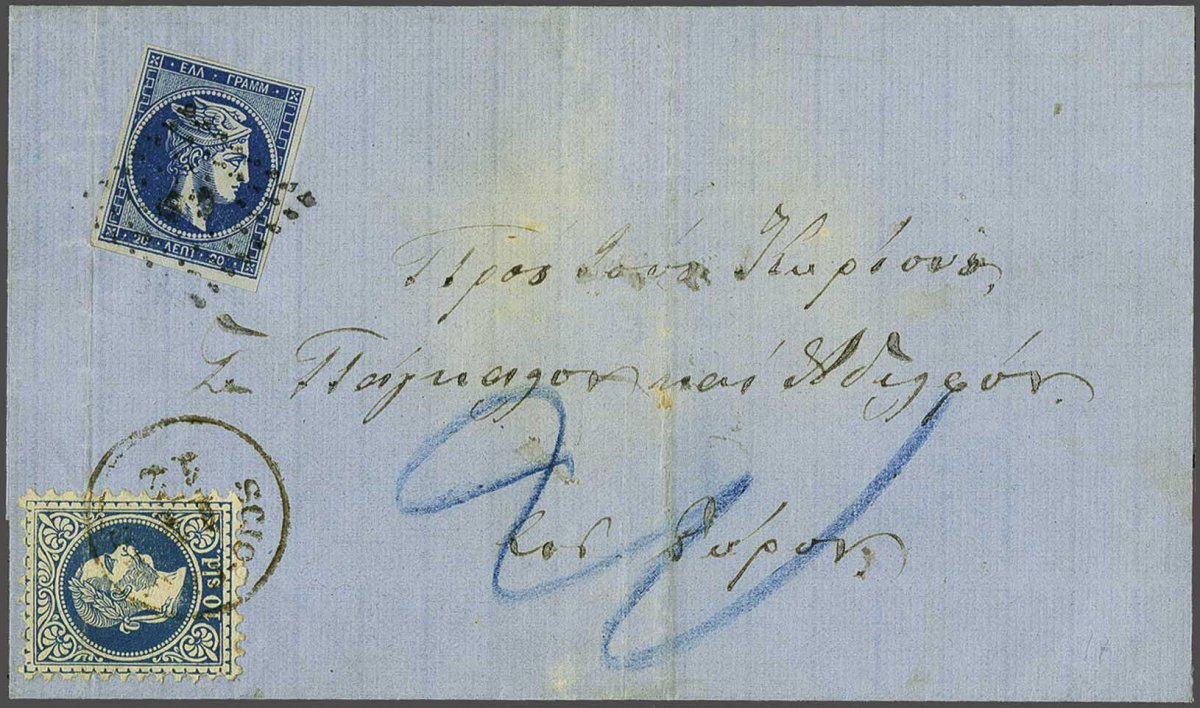 ΕΛΛ · ΓΡΑΜΜ
20 ΛΕΠΤ 20
Πρὸς τοὺς Κυρίους
Πάγκαλον καὶ Ἀδελφόν.
εἰς Σύρον
SCIO
10 sld